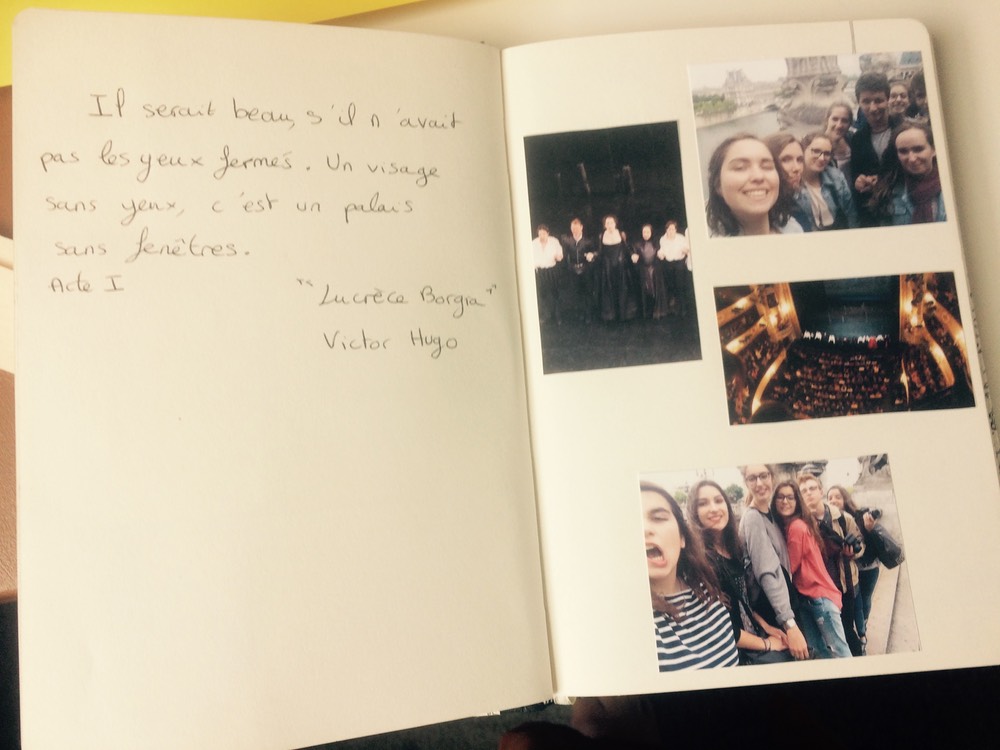 Il serait beau, s'il n'avait
pas les yeux fermés. Un visage
sans yeux, c'est un palais
sans fenêtres.
Acte I
"Lucrèce Borgia"
Victor Hugo